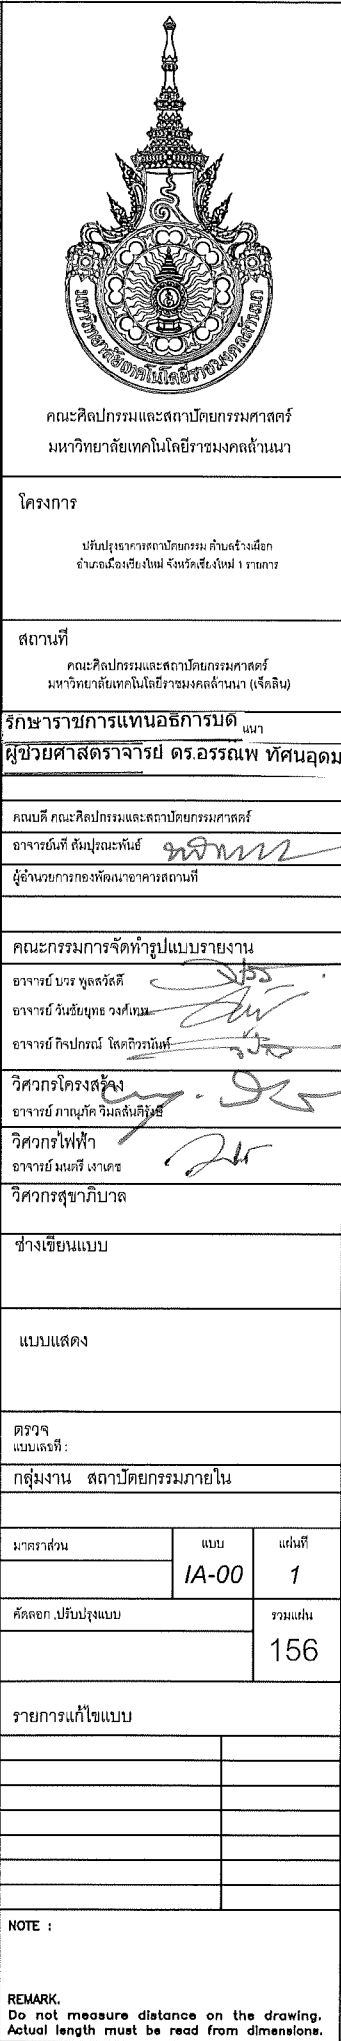 มหาวิทยาลัยเทคโนโลยีราชมงคลล้านนา
คณะศิลปกรรมและสถาปัตยกรรมศาสตร์
มหาวิทยาลัยเทคโนโลยีราชมงคลล้านนา
โครงการ
ปรับปรุงอาคารสถาปัตยกรรม ตำบลช้างเผือก
อำเภอเมืองเชียงใหม่ จังหวัดเชียงใหม่ 1 รายการ
สถานที่
คณะศิลปกรรมและสถาปัตยกรรมศาสตร์
มหาวิทยาลัยเทคโนโลยีราชมงคลล้านนา (เจ็ดลิน)
รักษาราชการแทนอธิการบดี
นนา
ผู้ช่วยศาสตราจารย์ ดร.อรรณพ ทัศนอุดม
คณบดี คณะศิลปกรรมและสถาปัตยกรรมศาสตร์
อาจารย์นที สัมปุรณะพันธ์
ผู้อำนวยการกองพัฒนาอาคารสถานที่
คณะกรรมการจัดทำรูปแบบรายงาน
อาจารย์ บวร พูลสวัสดิ์
อาจารย์ วันชัยยุทธ วงศ์เทพ
อาจารย์ กิจปกรณ์
วิศวกรโครงสร้าง
อาจารย์ ภาณุภัค
วิศวกรไฟฟ้า
อาจารย์ มนตรี เงาเดช
วิศวกรสุขาภิบาล
ช่างเขียนแบบ
แบบแสดง
ตรวจ
แบบเลขที่ :
กลุ่มงาน สถาปัตยกรรมภายใน
มาตราส่วน แบบ แผ่นที่
IA-00 1
คัดลอก ,ปรับปรุงแบบ รวมแผ่น
156
รายการแก้ไขแบบ
NOTE :
REMARK.
Do not measure distance on the drawing.
Actual length must be read from dimensions.